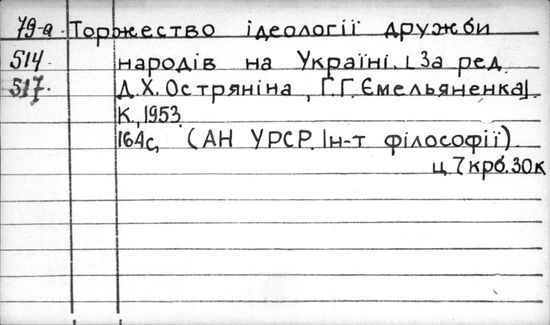 79-а Торжество ідеології дружби
514 народів на Україні. [За ред.
517. Д.Х. Остряніна, Г.Г. Ємельяненка]
К., 1953.
164с, (АН УРСР. Ін-т філософії).
ц. 7 крб. 30к